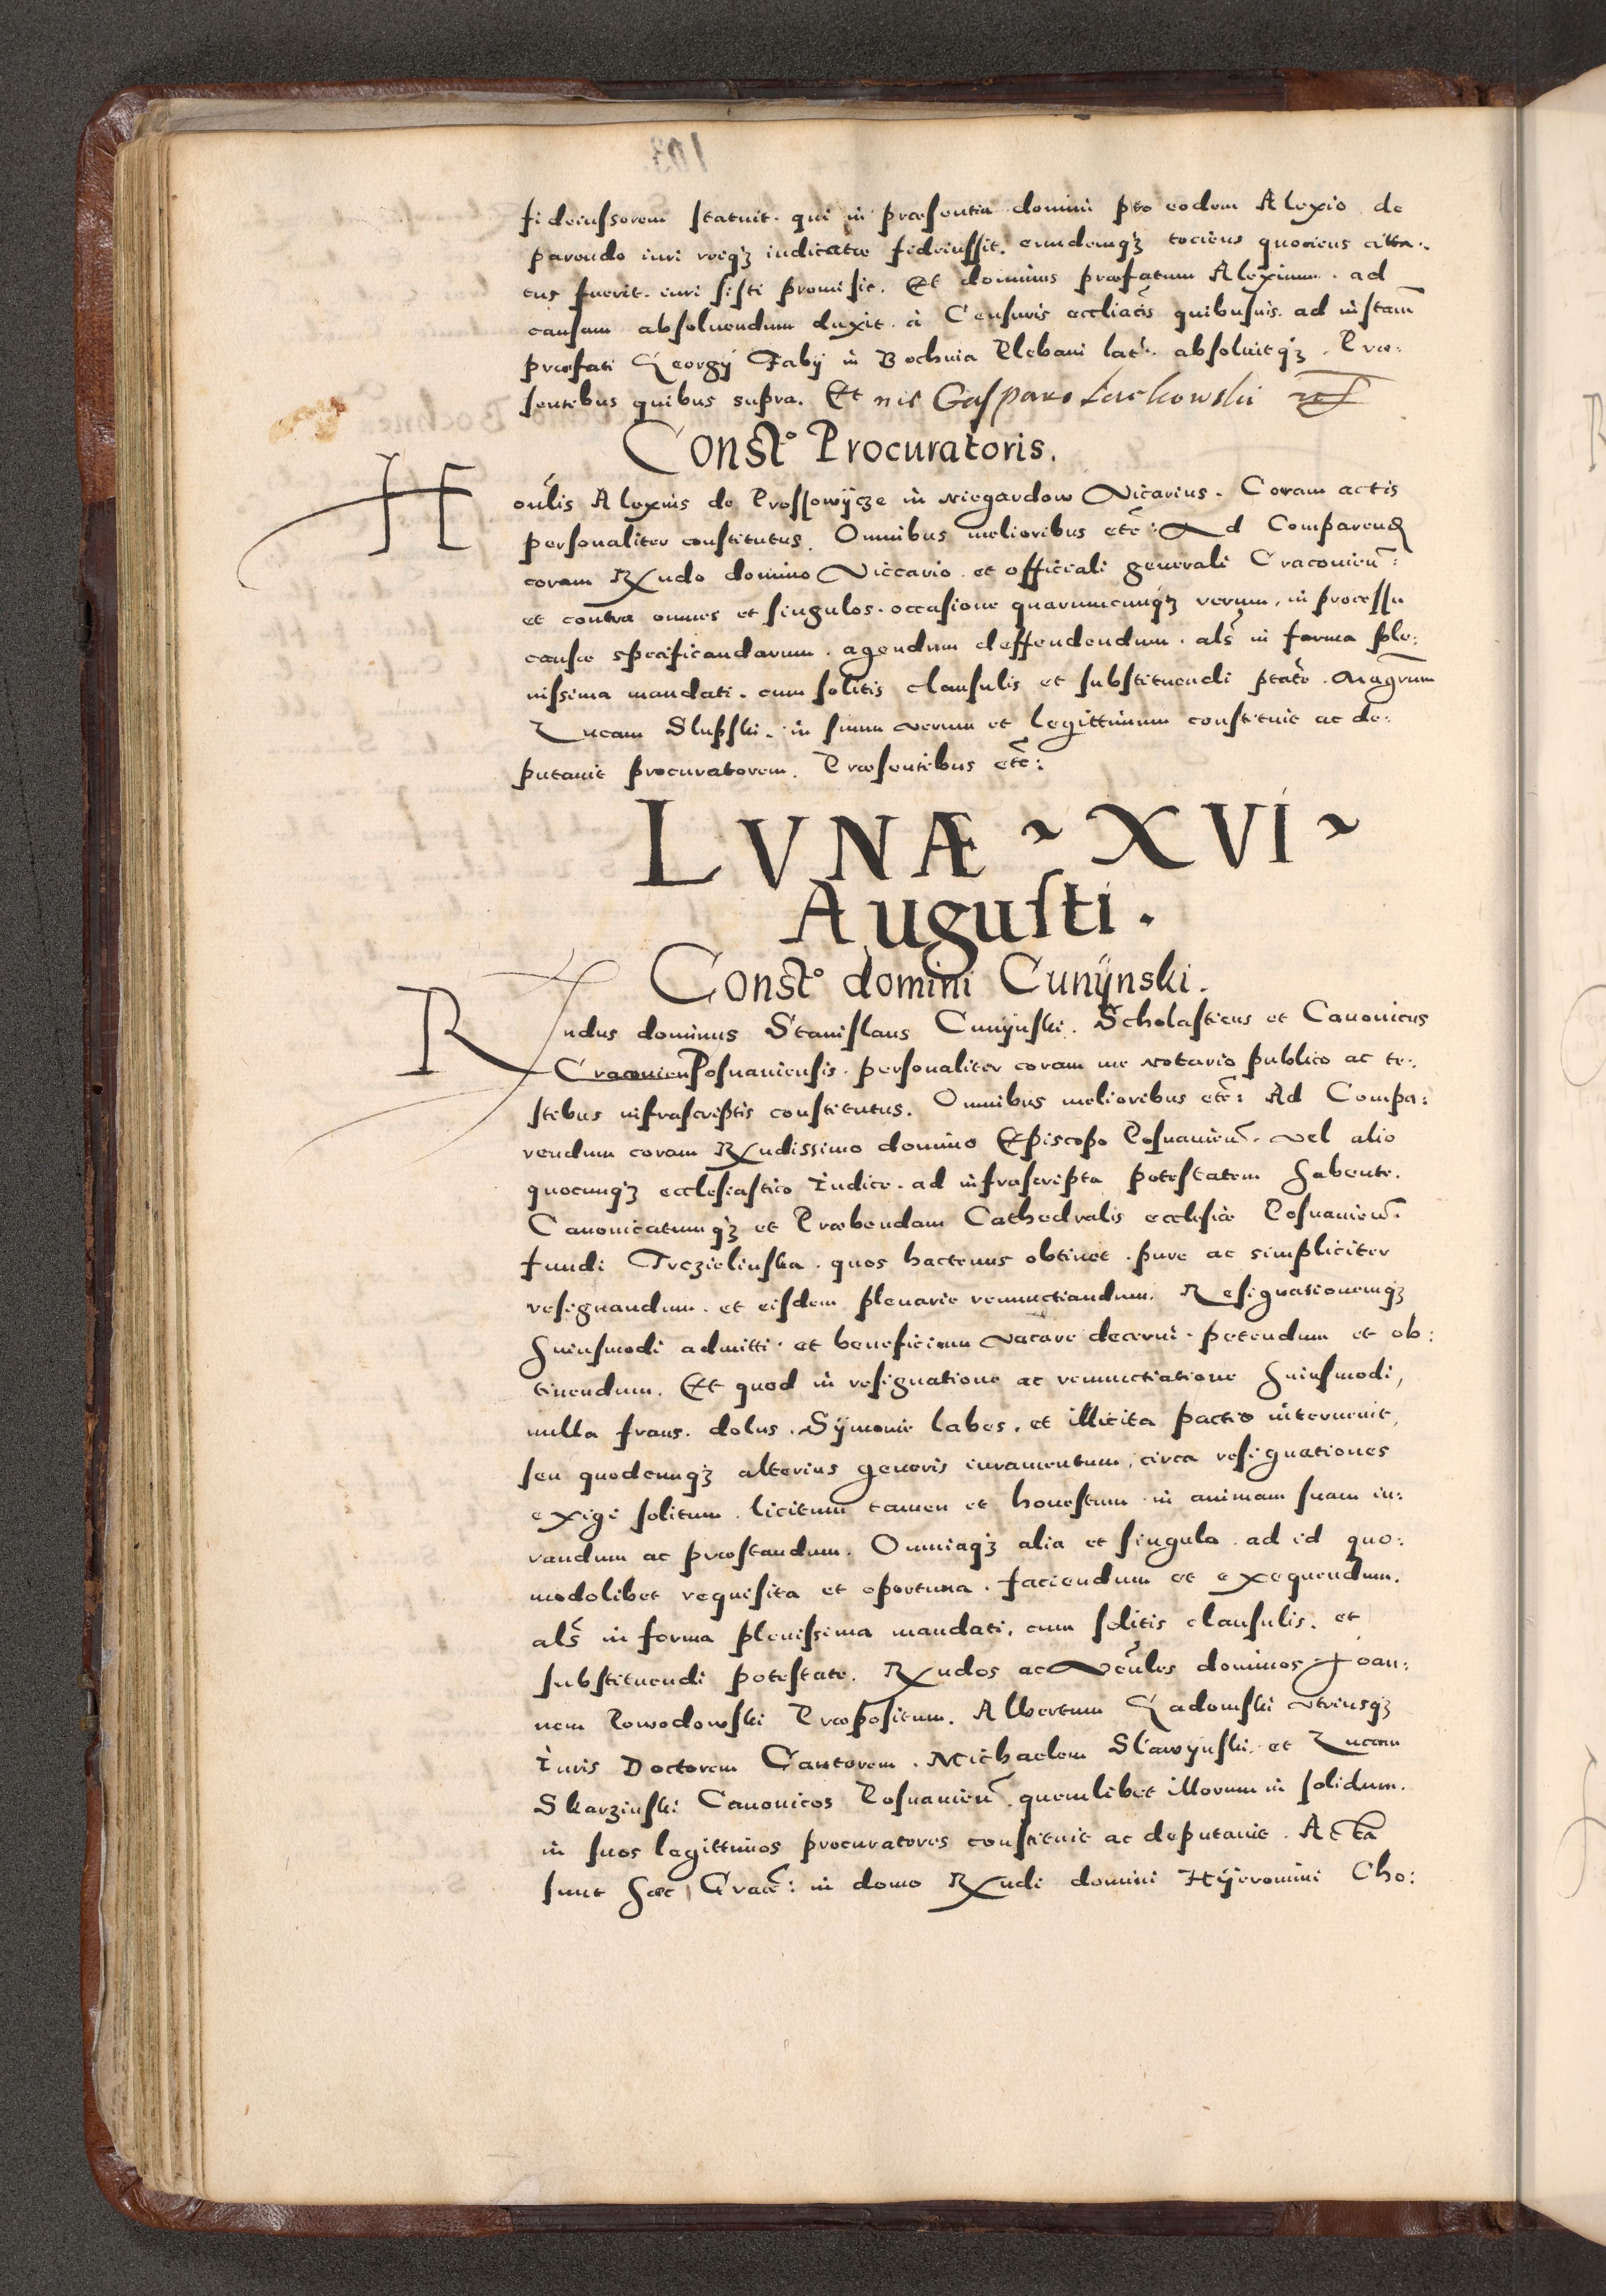 fideiussorem statuit. qui in præsentia domini pro eodem Alexio de
parendo iuri reiqz iudicatæ fideiussit. eundemqz tociens quociens citta-
tus fuerit. iuri sisti promisit. Et dominus præfatum Alexium. ad
causam absoluendum duxit. à Censuris eccliacis quibusuis. ad instam
præfati Georgij Fabij in Bochnia Plebani lat. absoluitqz. Præ:
sentibus quibus supra. Et me Gasparo Luchowski
Const° Procuratoris.
Honlis Alexius de Prossowijcze in Niegardow Vicarius. Coram actis
personaliter constitutus. Omnibus melioribus etc: Ad Comparend
coram Rndo domino Viccario et officiali generali Cracouien:
et contra omnes et singulos. occasione quarumcunqz rerum, in processu
causæ specificandarum. agendum deffendendum. als in forma ple:
nissima mandati. cum solitis clausulis et substituendi ptate. Magrum
Lucam Slupski. in suum verum et legittimum constituit ac de:
putauit procuratorem. Præsentibus etc:
LVNÆ ~ XVI ~
Augusti.
Const° domini Cunijnski.
Rndus dominus Stanislaus Cunijnski. Scholasticus et Canonicus
Cracouien Posnaniensis. personaliter coram me Notario publico ac te:
stibus infrascriptis constitutus. Omnibus melioribus etc: Ad Compa:
rendum coram Rndissimo domino Episcopo Posnanien. vel alio
quocunqz ecclesiastico Iudice. ad infrascripta potestatem habente.
Canonicatumqz et Præbendam Cathedralis ecclesiæ Posnanien.
fundi Trczielinska. quos hactenus obtinet. pure ac simpliciter
resignandum. et eisdem plenarie renunctiandum. Resignationemqz
huiusmodi admitti. et beneficium vacare decerni. petendum et ob:
tinendum. Et quod in resignatione ac renunctiatione huiusmodi,
nulla fraus. dolus. Sijmonie labes. et illicita pactio interuenit,
seu quodcunqz alterius generis iuramentum, circa resignationes
exigi solitum. licitum tamen et honestum in animam suam iu:
randum ac præstandum. Omniaqz alia et singula. ad id quo:
modolibet requisita et oportuna. faciendum et exequendum.
als in forma plenissima mandati, cum solitis clausulis. et
substituendi potestate. Rndos ac Venles dominos Joan:
nem Powodowski Præpositum. Albertum Radomski vtriusqz
Iuris Doctorem Cantorem. Michaelem Slawijnski. et Lucam
Skarzinski Canonicos Posnanien. quemlibet illorum in solidum.
in suos legittimos procuratores constituit ac deputauit. Acta
sunt hæc Cracoe: in domo Rndi domini Hijeronimi Cho: